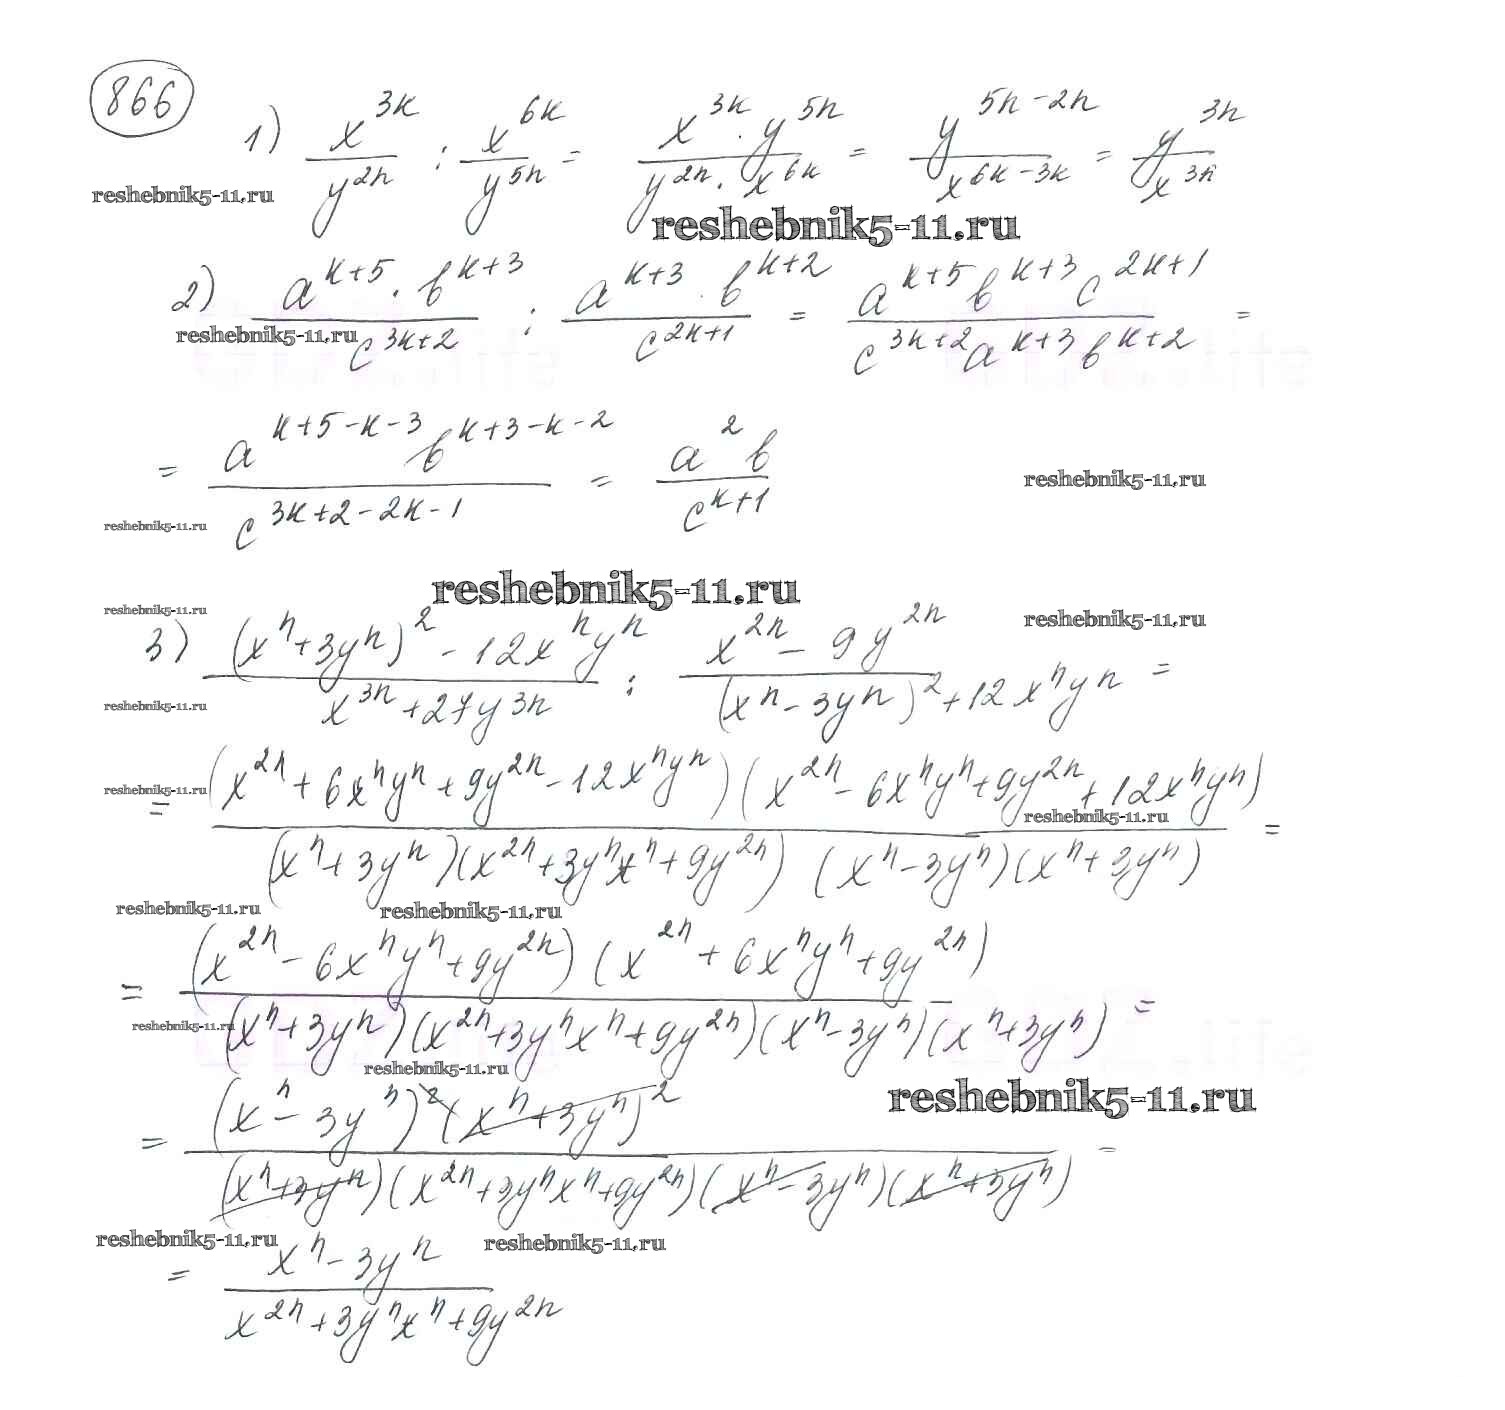 866
1) x^{3k}/y^{2n} : x^{6k}/y^{5n} = (x^{3k} · y^{5n})/(y^{2n} · x^{6k}) = y^{5n-2n}/x^{6k-3k} = y^{3n}/x^{3k}
reshebnik5-11.ru
reshebnik5-11.ru
2) (a^{k+5} · b^{k+3})/c^{3k+2} : (a^{k+3} · b^{k+2})/c^{2k+1} = (a^{k+5} b^{k+3} c^{2k+1})/(c^{3k+2} a^{k+3} b^{k+2}) =
reshebnik5-11.ru
= (a^{k+5-k-3} b^{k+3-k-2})/c^{3k+2-2k-1} = (a^2 b)/c^{k+1}
reshebnik5-11.ru
reshebnik5-11.ru
reshebnik5-11.ru
reshebnik5-11.ru
reshebnik5-11.ru
3) ((x^n+3y^n)^2 - 12x^n y^n)/(x^{3n}+27y^{3n}) : (x^{2n} - 9y^{2n})/((x^n-3y^n)^2+12x^n y^n) =
reshebnik5-11.ru
reshebnik5-11.ru
= ((x^{2n}+6x^n y^n+9y^{2n}-12x^n y^n)(x^{2n}-6x^n y^n+9y^{2n}+12x^n y^n))/((x^n+3y^n)(x^{2n}+3y^n x^n+9y^{2n})(x^n-3y^n)(x^n+3y^n)) =
reshebnik5-11.ru
reshebnik5-11.ru
reshebnik5-11.ru
= ((x^{2n}-6x^n y^n+9y^{2n})(x^{2n}+6x^n y^n+9y^{2n}))/((x^n+3y^n)(x^{2n}+3y^n x^n+9y^{2n})(x^n-3y^n)(x^n+3y^n)) =
reshebnik5-11.ru
reshebnik5-11.ru
reshebnik5-11.ru
= ((x^n-3y^n)^2(x^n+3y^n)^2)/((x^n+3y^n)(x^{2n}+3y^n x^n+9y^{2n})(x^n-3y^n)(x^n+3y^n)) =
reshebnik5-11.ru
reshebnik5-11.ru
= (x^n-3y^n)/(x^{2n}+3y^n x^n+9y^{2n})